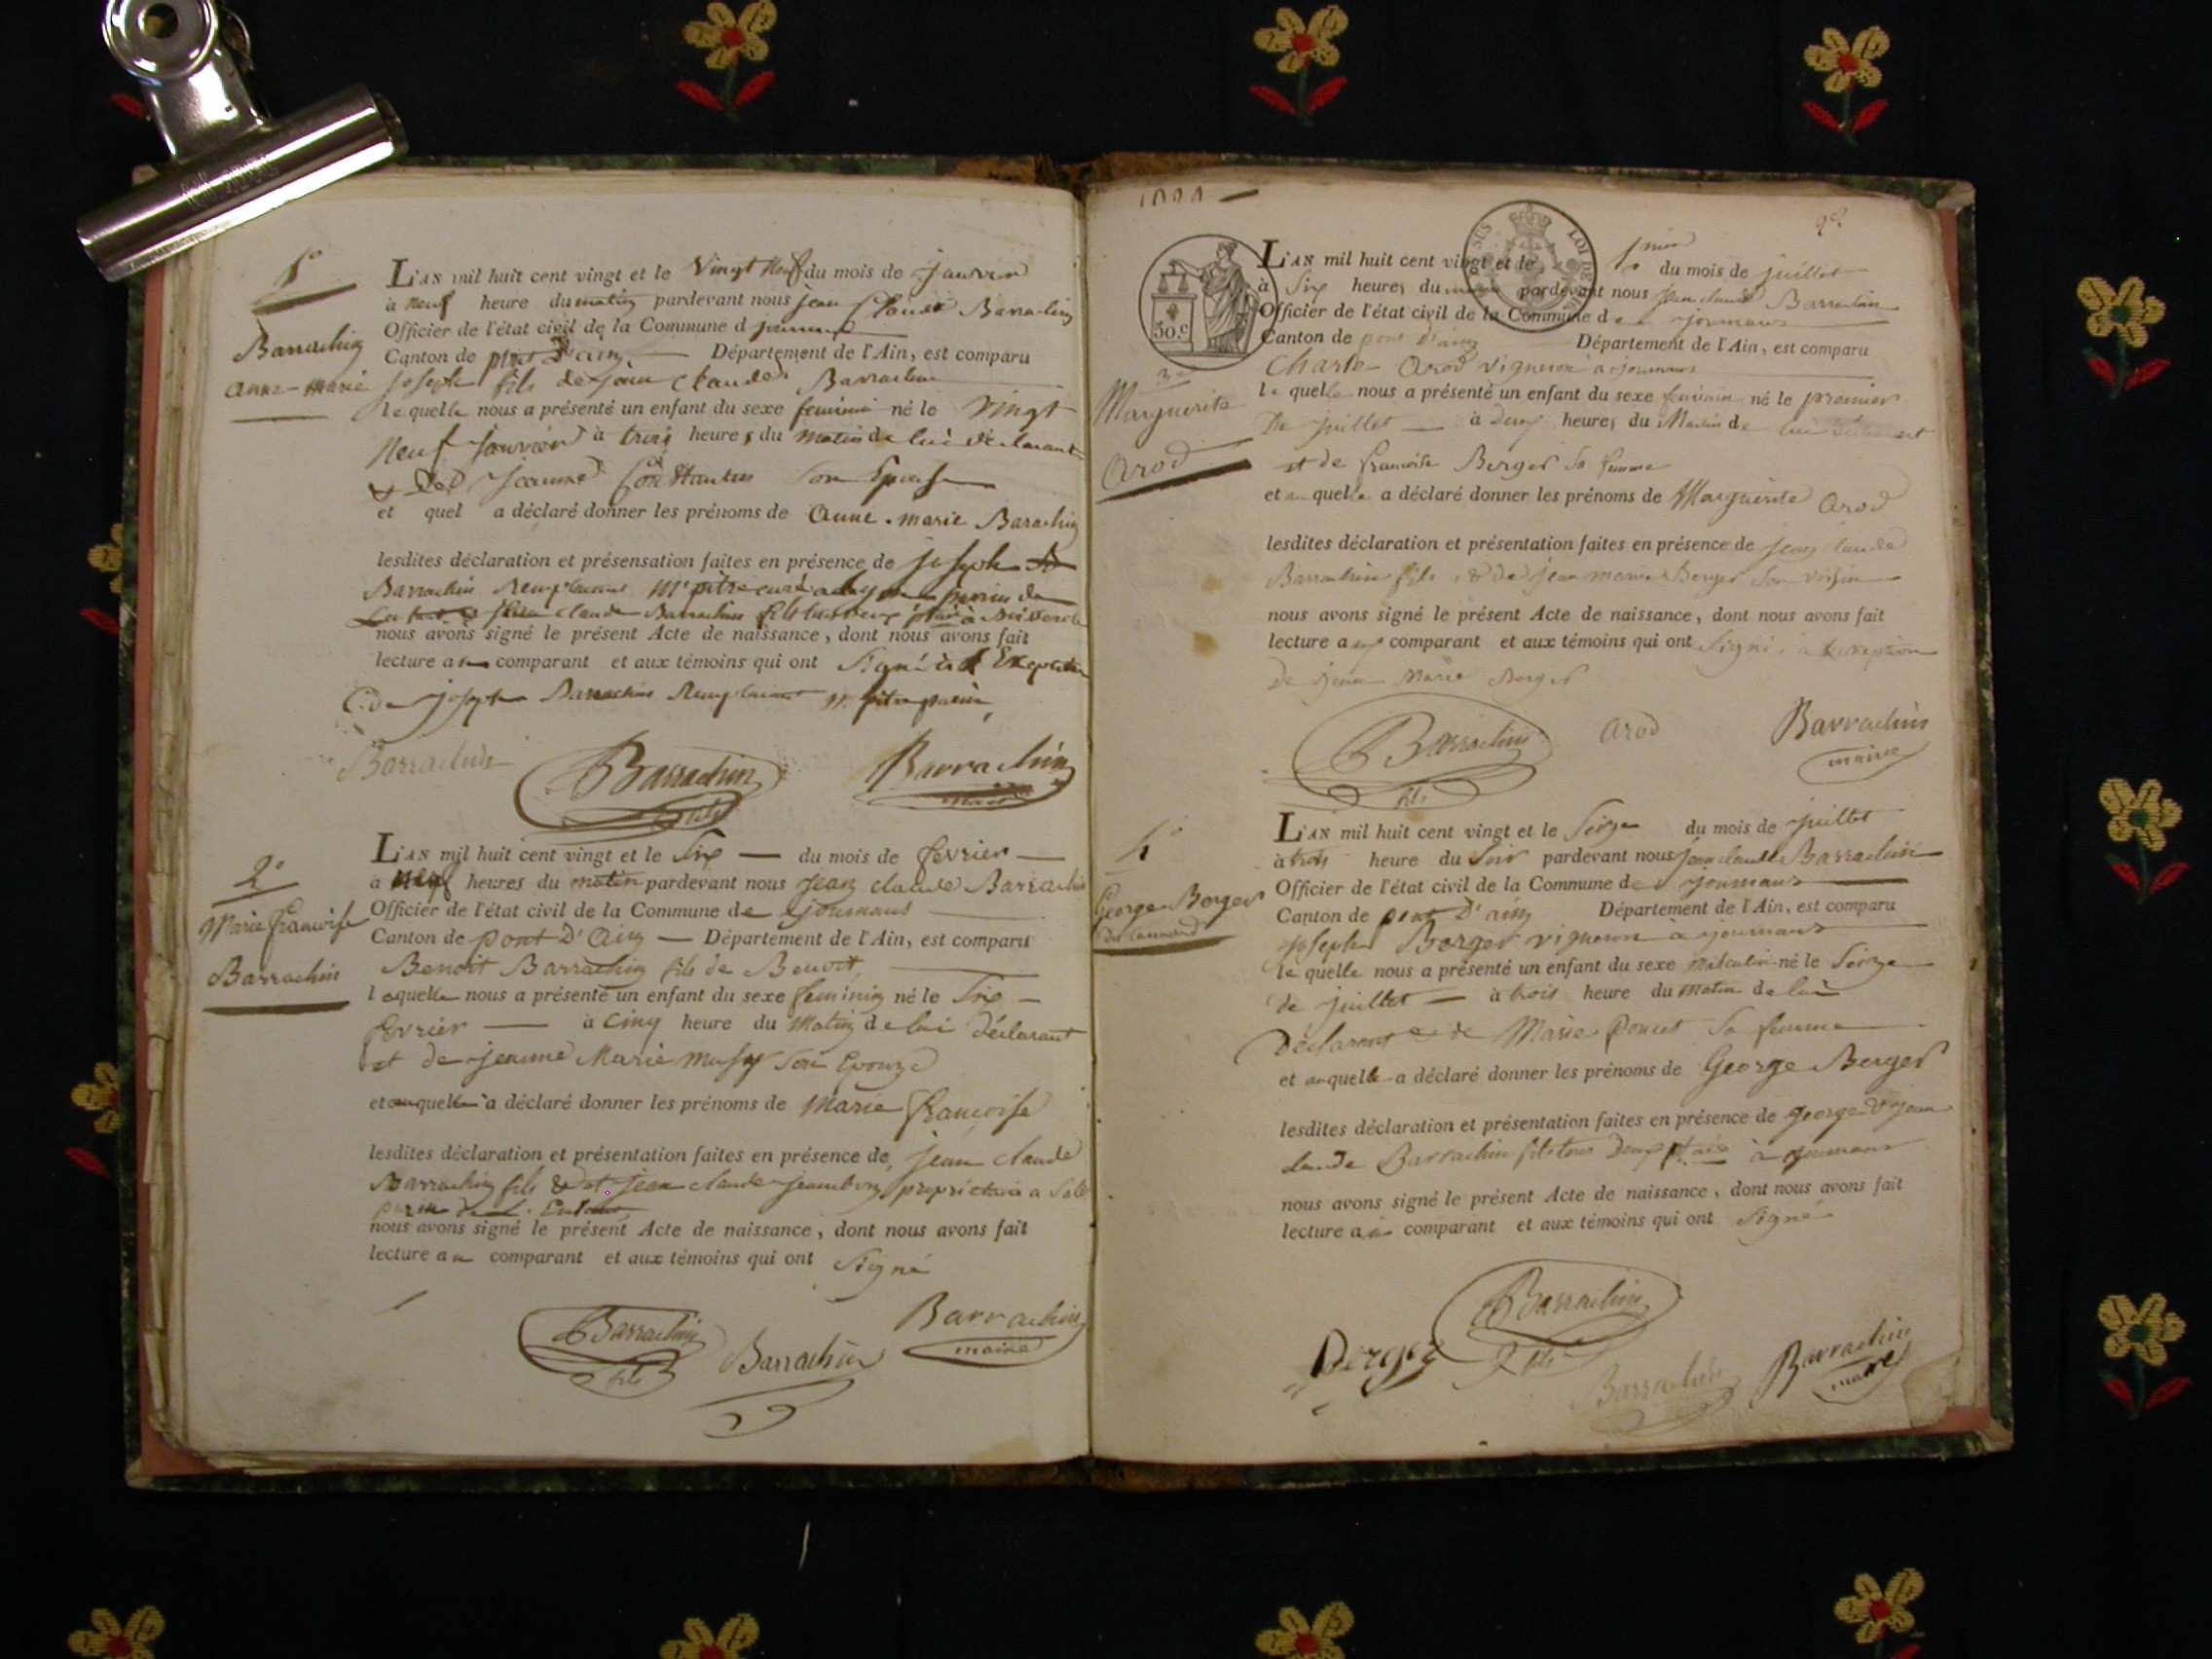 1°
Barrachin
anne-marie
L'AN mil huit cent vingt et le Vingt Neuf du mois de janvier
à neuf heure du matin pardevant nous jean Claude Barrachin
Officier de l'état civil de la Commune d
Canton de pont D'ain Département de l'Ain, est comparu
joseph fils de jean claude Barrachin
lequelle nous a présenté un enfant du sexe feminin né le Vingt
Neuf Janvier à trois heures du matin de lui déclarant
& de Jeanne Son Epouse
et quel a déclaré donner les prénoms de Anne-marie Barachin
lesdites déclaration et présensation faites en présence de joseph
Barrachin Remplacant Mr pitre curé
jean claude Barrachin fils
nous avons signé le présent Acte de naissance, dont nous avons fait
lecture au comparant et aux témoins qui ont Signé à l'Exception
de joseph Barrachin Remplacant
Barrachin Barrachin fils Barrachin maire
2°
Marie françoise
Barrachin
L'AN mil huit cent vingt et le Six du mois de fevrier
à neuf heures du matin pardevant nous Jean claude Barrachin
Officier de l'état civil de la Commune de journans
Canton de pont D'Ain Département de l'Ain, est comparu
Benoit Barrachin fils de Benoit
lequelle nous a présenté un enfant du sexe feminin né le Six
fevrier à cinq heure du Matin de lui déclarant
et de jeanne Marie Son Epouze
et auquelle a déclaré donner les prénoms de Marie françoise
lesdites déclaration et présentation faites en présence de jean claude
Barrachin fils & et jean claude propriétaire a
nous avons signé le présent Acte de naissance, dont nous avons fait
lecture au comparant et aux témoins qui ont Signé
Barrachin fils Barrachin Barrachin maire
2e
SUS LOI DE
50.c
3e
Marguerite
Arod
L'AN mil huit cent vingt et le 1mier du mois de juillet
à Six heures du matin pardevant nous Jean claude Barrachin
Officier de l'état civil de la Commune de journans
Canton de pont D'ain Département de l'Ain, est comparu
Charle Arod vigneron à journans
lequelle nous a présenté un enfant du sexe feminin né le premier
De juillet à Deux heures du Matin de lui déclarant
et de françoise Berger Sa femme
et auquelle a déclaré donner les prénoms de Marguerite Arod
lesdites déclaration et présentation faites en présence de jean claude
Barrachin fils & de jean marie Berger Son voisin
nous avons signé le présent Acte de naissance, dont nous avons fait
lecture aux comparant et aux témoins qui ont Signé à l'exception
De jean Marie Berger
Barrachin fils Arod Barrachin maire
4°
George Berger
L'AN mil huit cent vingt et le Seize du mois de juillet
à trois heure du Soir pardevant nous jean claude Barrachin
Officier de l'état civil de la Commune de journans
Canton de pont D'ain Département de l'Ain, est comparu
joseph Berger vigneron à journans
lequelle nous a présenté un enfant du sexe Masculin né le Seize
de juillet à trois heure du Matin de lui
Déclarant & de Marie Poncet Sa femme
et auquelle a déclaré donner les prénoms de George Berger
lesdites déclaration et présentation faites en présence de george & jean
claude Barrachin fils tous Deux à journans
nous avons signé le présent Acte de naissance, dont nous avons fait
lecture au comparant et aux témoins qui ont Signé
Berger Barrachin fils Barrachin Barrachin maire